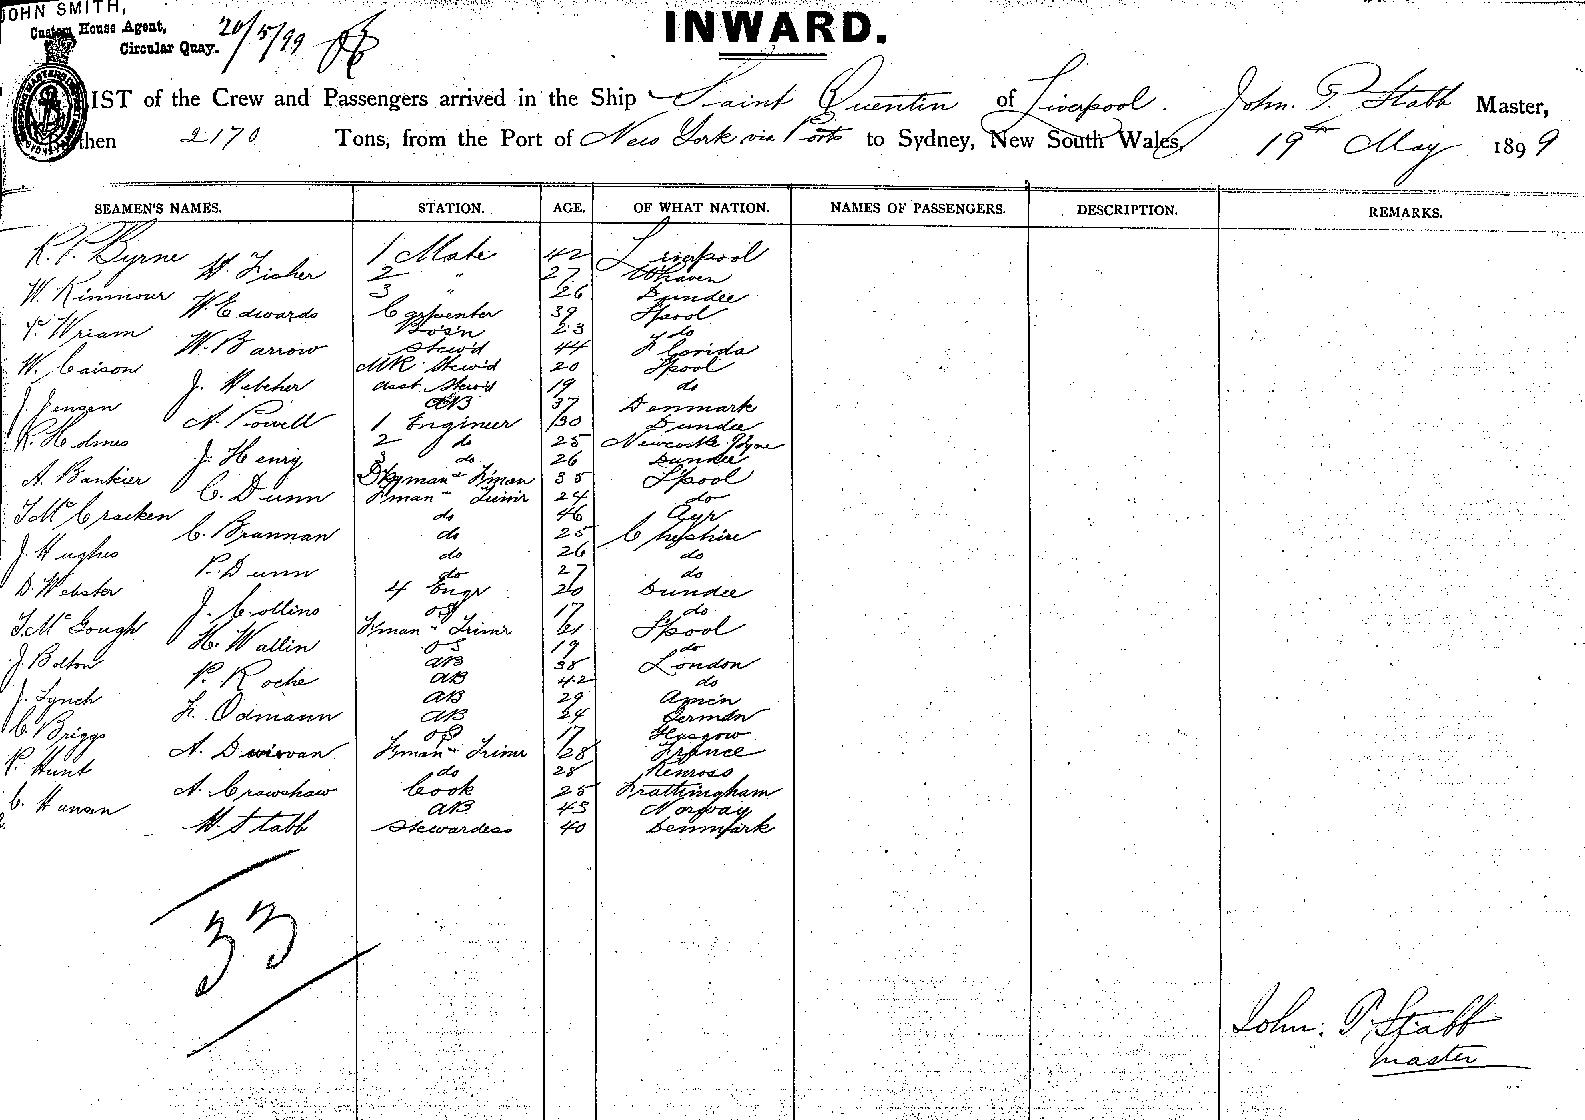 JOHN SMITH,
Custom House Agent,
Circular Quay.
20/5/99
INWARD.
LIST of the Crew and Passengers arrived in the Ship Saint Quentin of Liverpool. John. P. Stabb Master,
Burthen 2170 Tons, from the Port of New York via Ports to Sydney, New South Wales, 19th May 1899
SEAMEN'S NAMES. STATION. AGE. OF WHAT NATION. NAMES OF PASSENGERS. DESCRIPTION. REMARKS.
R. P. Byrne 1 Mate 42 Liverpool
W. Fisher 2 " 27 Whaven
W. Kinmour 3 " 26 Dundee
W. Edwards Carpenter 39 Lpool
P. Wriam Bos'n 23 do
W. Barrow Stew'd 44 Florida
W. Caison MR Stew'd 20 Lpool
J. Webcher asst. Stew'd 19 do
J. Jensen AB 37 Denmark
A. Powell 1 Engineer 30 Dundee
R. Holmes 2 do 25 Newcastle Tyne
J. Henry 3 do 26 Dundee
A. Bankier Dkyman & Fman 35 Lpool
C. Dunn Fman & Trimr 24 do
J McCracken do 46 Ayr
C. Brannan do 25 Cheshire
J. Hughes do 26 do
P. Dunn do 27 do
D. Webster 4 Engr 20 Dundee
J. Collins OS 17 do
J McGough Fman & Trimr 21 Lpool
H. Wallin OS 19 do
J. Bolton AB 38 London
P. Roche AB 42 do
J. Lynch AB 29 Amcn
F. Odmann AB 24 German
C. Briggs OS 17 Glasgow
A. Fman & Trimr 28 France
P. Hunt do 28 Kenross
A. Crawshaw Cook 25
C. Hansen AB 43 Norway
M. Stabb Stewardess 40 Denmark
33
John. P. Stabb
master